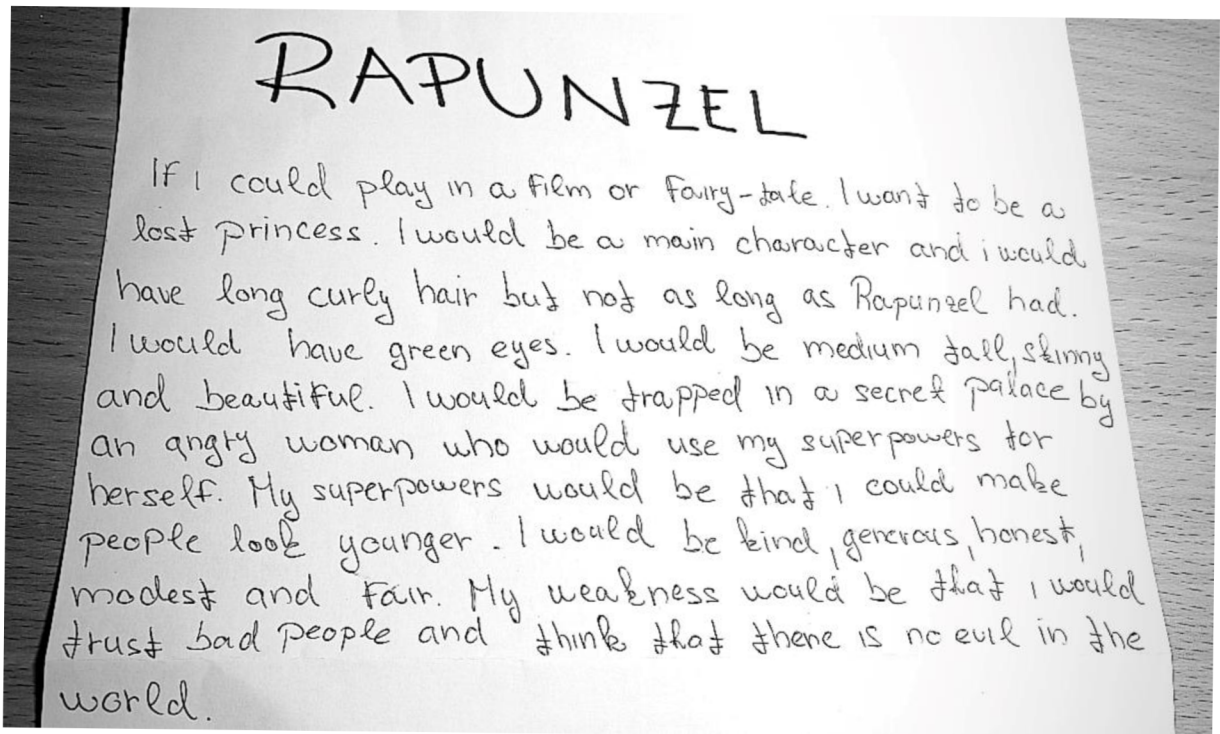 RAPUNZEL
If I could play in a film or fairy-tale. I want to be a
lost princess. I would be a main character and i would
have long curly hair but not as long as Rapunzel had.
I would have green eyes. I would be medium tall, skinny
and beautiful. I would be trapped in a secret palace by
an angry woman who would use my superpowers for
herself. My superpowers would be that i could make
people look younger. I would be kind, generous, honest,
modest and fair. My weakness would be that i would
trust bad people and think that there is no evil in the
world.